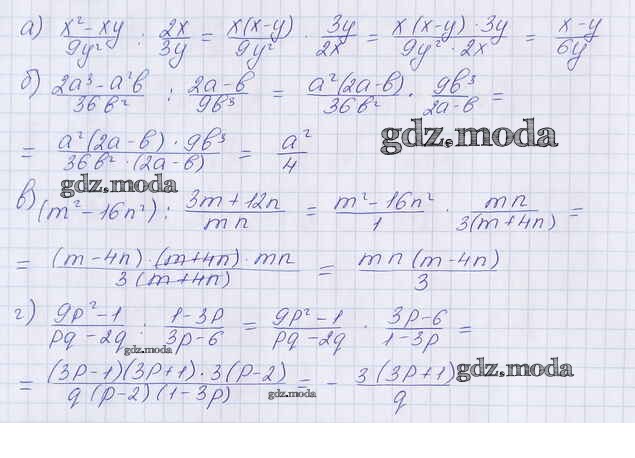 а) (x² - xy)/(9y²) : 2x/(3y) = x(x-y)/(9y²) · 3y/(2x) = (x(x-y) · 3y)/(9y² · 2x) = (x-y)/(6y)
б) (2a³ - a²b)/(36b²) : (2a-b)/(9b³) = a²(2a-b)/(36b²) · 9b³/(2a-b) =
gdz.moda
= (a²(2a-b) · 9b³)/(36b² · (2a-b)) = a²/4
gdz.moda
в) (m² - 16n²) : (3m + 12n)/(mn) = (m² - 16n²)/1 · mn/(3(m+4n)) =
= ((m-4n) · (m+4n) · mn)/(3(m+4n)) = mn(m-4n)/3
г) (9p² - 1)/(pq - 2q) : (1-3p)/(3p-6) = (9p² - 1)/(pq - 2q) · (3p-6)/(1-3p) =
gdz.moda
gdz.moda
= ((3p-1)(3p+1) · 3(p-2))/(q(p-2)(1-3p)) = - 3(3p+1)/q
gdz.moda